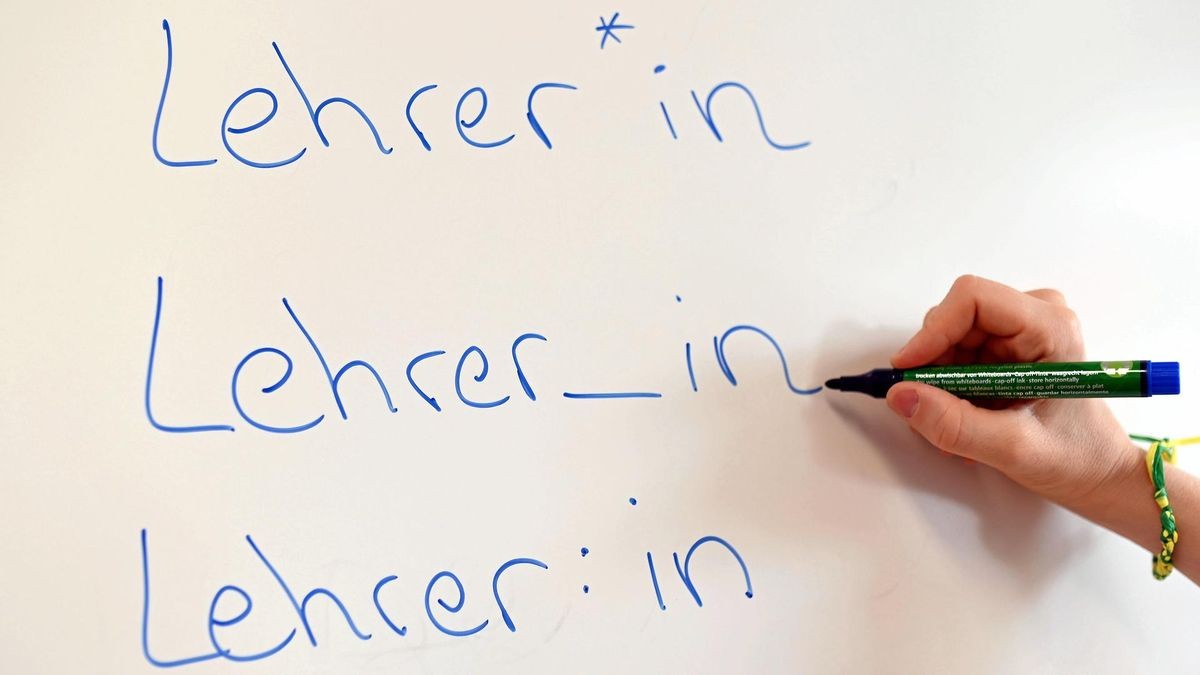 Lehrer*in
Lehrer_in
Lehrer:in
trocken abwischbar von Whiteboards · Cap off Tinte · waagrecht lagern
wipe from whiteboards · cap-off ink · store horizontally
sur tableaux blancs · encre cap off · conserver à plat
blancas · tinta cap off · guardar horizontalmente